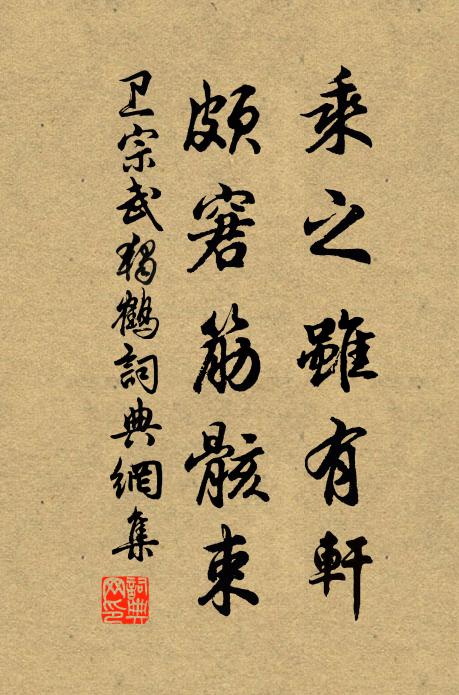 乘之雖有軒
頗窘筋骸束
卫宗武獨鶴詞典網集
詞典
网印